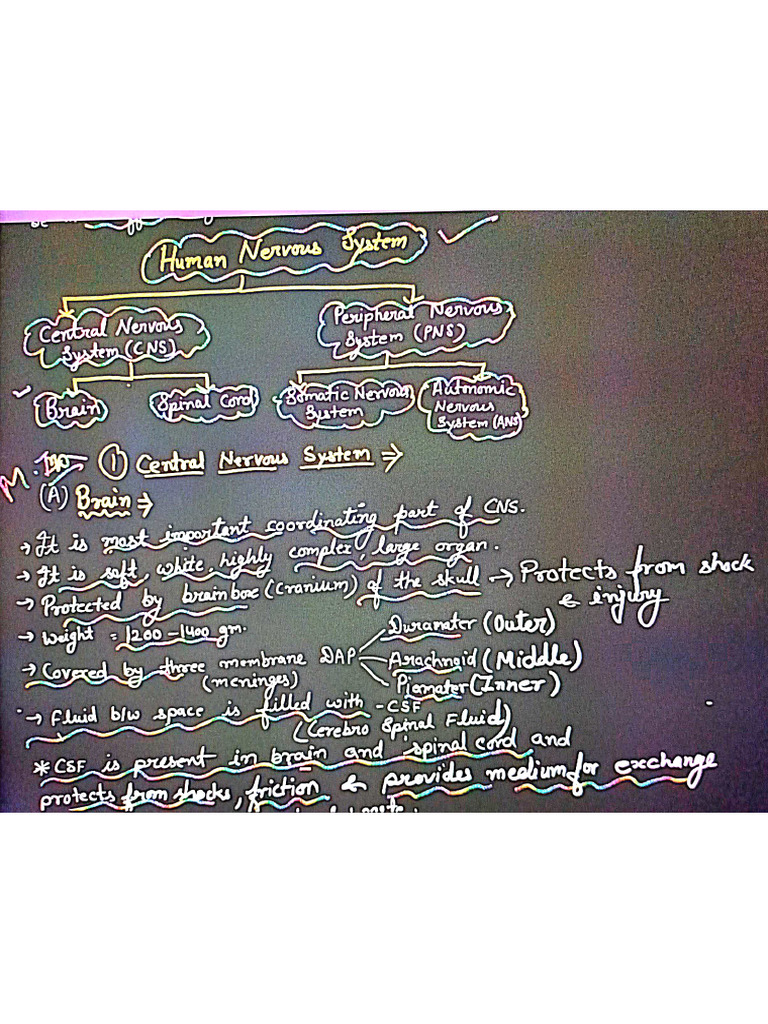 Human Nervous System
Central Nervous System (CNS)
Peripheral Nervous System (PNS)
Brain
Spinal Cord
Somatic Nervous System
Autonomic Nervous System (ANS)
M. Imp ① Central Nervous System ⇒
(A) Brain →
→ It is most important coordinating part of CNS.
→ It is soft, white, highly complex, large organ.
→ Protected by brain box (Cranium) of the skull → Protects from shock & injury
→ Weight = 1200 - 1400 gm.
→ Covered by three membrane DAP (meninges)
Duramater (Outer)
Arachnoid (Middle)
Piamater (Inner)
→ Fluid b/w space is filled with - CSF (Cerebro Spinal Fluid)
* CSF is present in brain and spinal cord and
protects from shocks, friction & provides medium for exchange